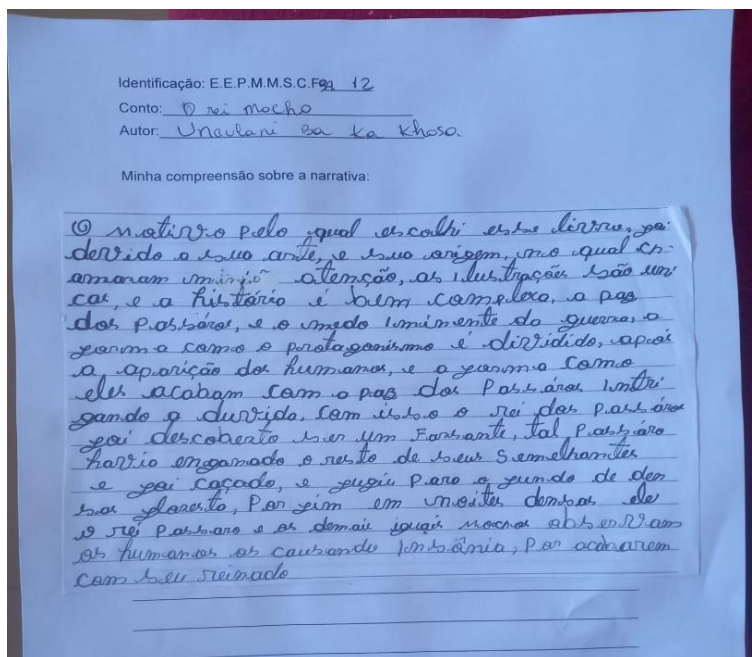 Identificação: E.E.P.M.M.S.C.F 12
Conto: O rei mocho
Autor: Ba Ka Khosa
Minha compreensão sobre a narrativa:
O motivo pelo qual escolhi esse livro, foi
devido a sua arte, e sua origem, no qual ch-
amaram minha atenção, as ilustrações são uni
cas, e a história é bem complexa, a paz
dos Passáros, e o medo iminente da guerra, a
forma como o protagonismo é dividido, após
a aparição dos humanos, e a forma como
eles acabam com a paz dos Passáros Intri
gando a duvida, com isso o rei dos Passáros
foi descoberto ser um Farsante, tal Passáro
havia enganado o resto de seus Semelhantes
e foi caçado, e fugiu Para o fundo de den
sa floresta, Por fim em noites densas ele
o rei Passaro e os demais iguais mochos observam
os humanos os causando Insânia, Por acabarem
com seu reinado